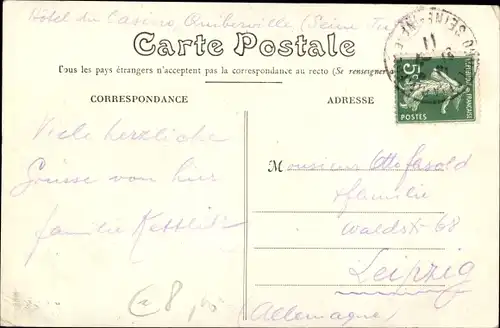 Hôtel du Casino Quiberville (Seine Inf
Carte Postale
Tous les pays étrangers n'acceptent pas la correspondance au recto (Se renseigner
CORRESPONDANCE
ADRESSE
5c
POSTES
Viele herzliche
Grüsse von hier
familie
Monsieur Otto Fasold
& familie
Waldstr 68
Leipzig
(Allemagne)